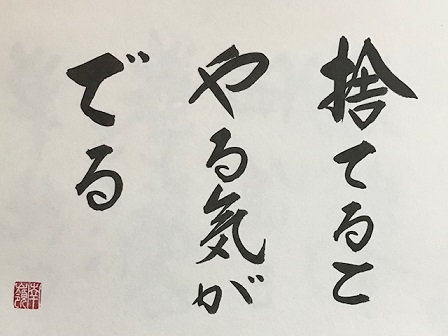 捨てるこ
やる気が
でる